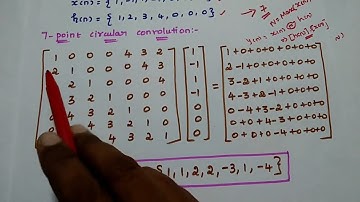 x(n) = { 1,
h(n) = { 1, 2, 3, 4, 0, 0, 0 } ✓
7
N = Max
y(n) = x(n) ⊛ h(n)
7- point circular convolution:-
1 0 0 0 4 3 2 1 1+0+0+0+0+0+0
2 1 0 0 0 4 3 -1 2-1+0+0+0+0+0
2 1 0 0 0 4 1 = 3-2+1+0+0+0+0
3 2 1 0 0 0 -1 4-3+2-1+0+0+0
4 3 2 1 0 0 0 0-4+3-2+0+0+0
4 3 2 1 0 0 0+0+4-3+0+0+0
4 3 2 1 0 0+0+0-4+0+0+0
{1, 1, 2, 2, -3, 1, -4}